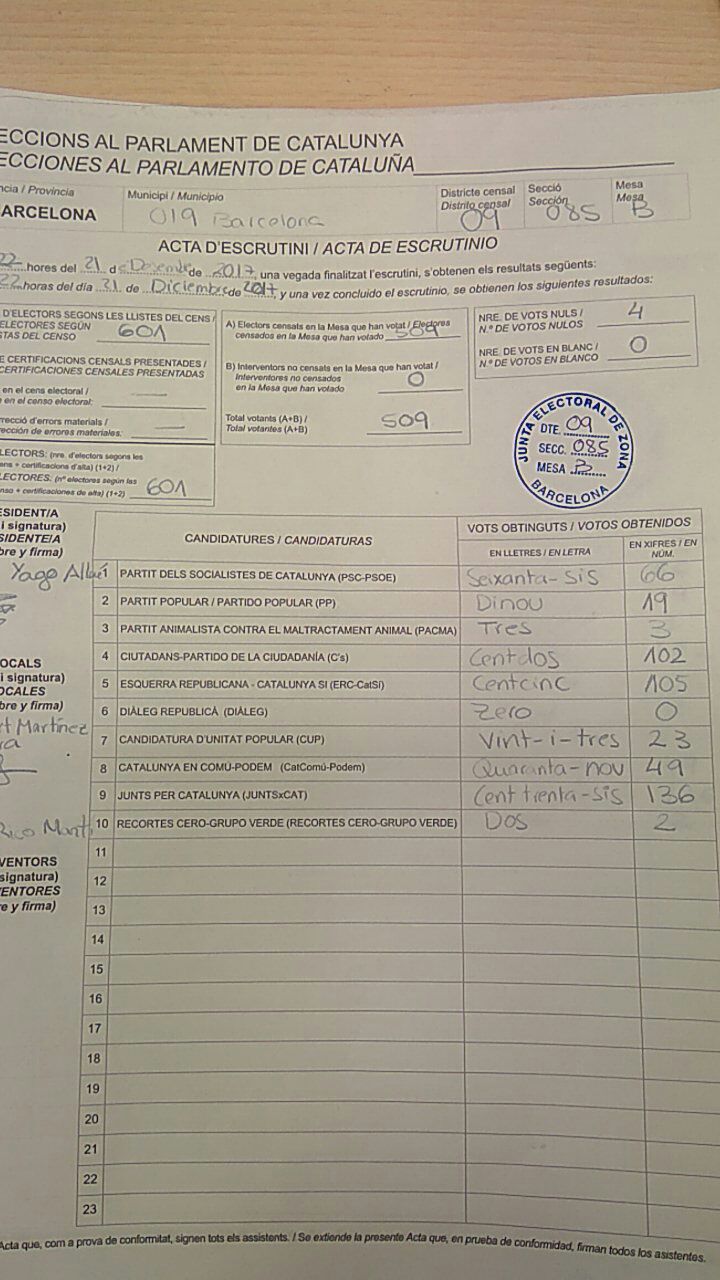 ECCIONS AL PARLAMENT DE CATALUNYA
ECCIONES AL PARLAMENTO DE CATALUÑA
ncia / Provincia
ARCELONA
Municipi / Municipio
019 Barcelona
Districte censal
Distrito censal
09
Secció
Sección
085
Mesa
Mesa
B
ACTA D'ESCRUTINI / ACTA DE ESCRUTINIO
22 hores del 21 de Desembre de 2017, una vegada finalitzat l'escrutini, s'obtenen els resultats següents:
22 horas del día 21 de Diciembre de 2017, y una vez concluido el escrutinio, se obtienen los siguientes resultados:
D'ELECTORS SEGONS LES LLISTES DEL CENS /
ELECTORES SEGÚN
STAS DEL CENSO
601
E CERTIFICACIONS CENSALS PRESENTADES /
CERTIFICACIONES CENSALES PRESENTADAS
en el cens electoral /
en el censo electoral:
rrecció d'errors materials /
rección de errores materiales:
LECTORS: (nre. d'electors segons les
ens + certificacions d'alta) (1+2) /
LECTORES: (nº electores según las
nso + certificaciones de alta) (1+2)
601
A) Electors censats en la Mesa que han votat / Electores
censados en la Mesa que han votado
509
B) Interventors no censats en la Mesa que han votat /
Interventores no censados
en la Mesa que han votado
0
Total votants (A+B) /
Total votantes (A+B)
509
NRE. DE VOTS NULS /
N.º DE VOTOS NULOS
4
NRE. DE VOTS EN BLANC /
N.º DE VOTOS EN BLANCO
0
JUNTA ELECTORAL DE ZONA
DTE. 09
SECC. 085
MESA B
BARCELONA
ESIDENT/A
i signatura)
SIDENTE/A
bre y firma)
OCALS
i signatura)
OCALES
bre y firma)
rt Martínez
Rico Martí
VENTORS
signatura)
VENTORES
e y firma)
CANDIDATURES / CANDIDATURAS
VOTS OBTINGUTS / VOTOS OBTENIDOS
EN LLETRES / EN LETRA
EN XIFRES / EN NÚM.
1 PARTIT DELS SOCIALISTES DE CATALUNYA (PSC-PSOE) Seixanta-sis 66
2 PARTIT POPULAR / PARTIDO POPULAR (PP) Dinou 19
3 PARTIT ANIMALISTA CONTRA EL MALTRACTAMENT ANIMAL (PACMA) Tres 3
4 CIUTADANS-PARTIDO DE LA CIUDADANÍA (C's) Centdos 102
5 ESQUERRA REPUBLICANA - CATALUNYA SI (ERC-CatSí) Centcinc 105
6 DIÀLEG REPUBLICÀ (DIÀLEG) Zero 0
7 CANDIDATURA D'UNITAT POPULAR (CUP) Vint-i-tres 23
8 CATALUNYA EN COMÚ-PODEM (CatComú-Podem) Quaranta-nou 49
9 JUNTS PER CATALUNYA (JUNTSxCAT) Cent trenta-sis 136
10 RECORTES CERO-GRUPO VERDE (RECORTES CERO-GRUPO VERDE) Dos 2
11
12
13
14
15
16
17
18
19
20
21
22
23
Acta que, com a prova de conformitat, signen tots els assistents. / Se extiende la presente Acta que, en prueba de conformidad, firman todos los asistentes.